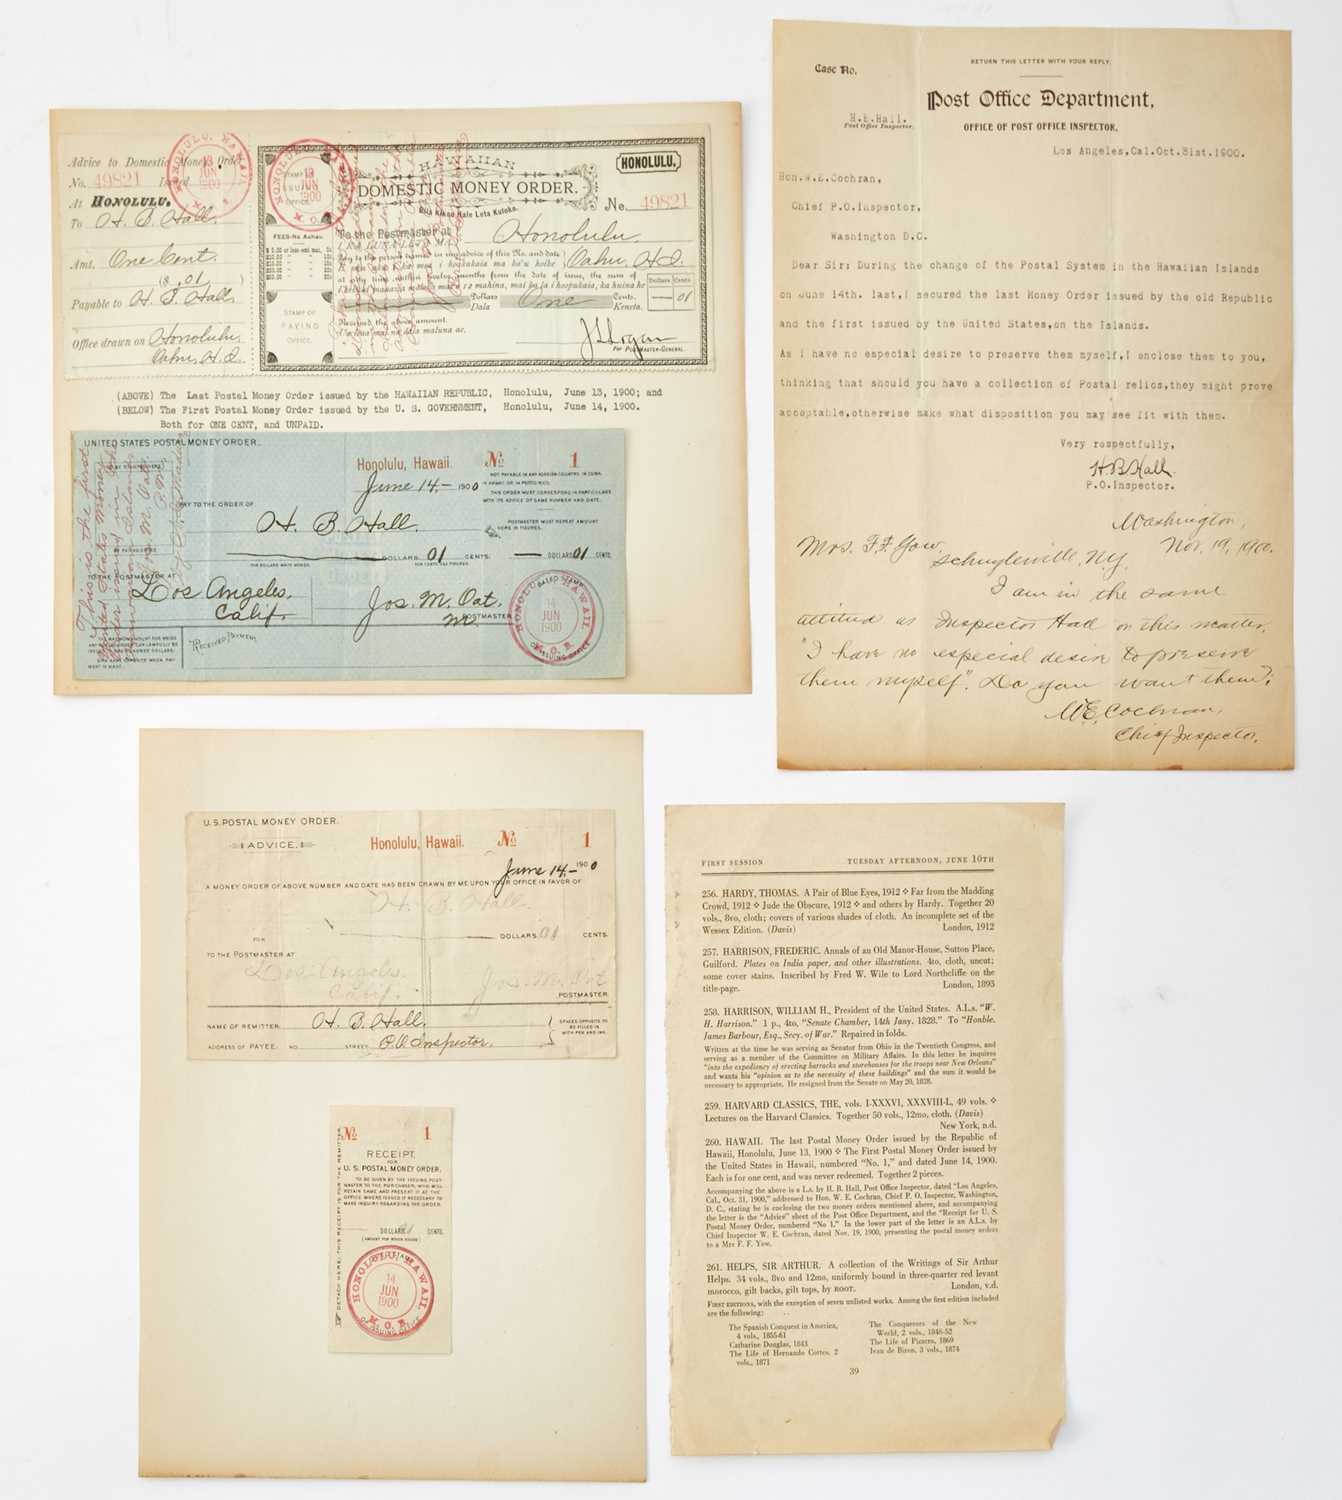 Advice to Domestic Money Order
No. 49821 Issued
At HONOLULU.
To H. B. Hall.
Amt. One Cent.
($ .01 )
Payable to H. B. Hall.
Office drawn on Honolulu
Oahu, H.I.
HONOLULU, HAWAII.
13
JUN
1900
M. O.
HONOLULU
13
JUN
1900
M. O.
STAMP OF
PAYING
OFFICE.
HAWAIIAN
DOMESTIC MONEY ORDER.
Bila Kikoo Hale Leta Kuloko.
HONOLULU.
No. 49821
To the Postmaster at Honolulu
Oahu, H.I.
Dollars Cents
01
Dollars One Cents.
Dala Keneta.
Received the above amount.
J L Logan
For POSTMASTER-GENERAL
(ABOVE) The Last Postal Money Order issued by the HAWAIIAN REPUBLIC, Honolulu, June 13, 1900; and
(BELOW) The First Postal Money Order issued by the U. S. GOVERNMENT, Honolulu, June 14, 1900.
Both for ONE CENT, and UNPAID.
UNITED STATES POSTAL MONEY ORDER.
Honolulu, Hawaii. No 1
June 14,- 1900
NOT PAYABLE IN ANY FOREIGN COUNTRY, IN CUBA,
THIS ORDER MUST CORRESPOND IN PARTICULARS
WITH ITS ADVICE OF SAME NUMBER AND DATE.
PAY TO THE ORDER OF
H. B. Hall.
POSTMASTER MUST REPEAT AMOUNT
HERE IN FIGURES.
DOLLARS 01 CENTS. DOLLARS 01 CENTS.
TO THE POSTMASTER AT
Los Angeles.
Calif.
Jos. M. Oat.
POSTMASTER
This is the first
United States Money
Received Payment,
DATED STAMP
HONOLULU HAWAII
14
JUN
1900
M. O. B.
OF ISSUING OFFICE
RETURN THIS LETTER WITH YOUR REPLY.
Case No.
Post Office Department,
H.B.Hall.
Post Office Inspector.
OFFICE OF POST OFFICE INSPECTOR.
Los Angeles,Cal.Oct.31st.1900.
Hon.W.E.Cochran,
Chief P.O.Inspector,
Washington D.C.
Dear Sir: During the change of the Postal System in the Hawaiian Islands
on June 14th. last,I secured the last Money Order issued by the old Republic
and the first issued by the United States,on the Islands.
As I have no especial desire to preserve them myself,I enclose them to you,
thinking that should you have a collection of Postal relics,they might prove
acceptable,otherwise make what disposition you may see fit with them.
Very respectfully,
H B Hall
P.O.Inspector.
Washington,
Nov. 19, 1900.
Mrs. F. F. Yaw.
Schuylerville, N.Y.
I am in the same
attitude as Inspector Hall on this matter,
"I have no especial desire to preserve
them myself". Do you want them?
W.E. Cochran,
Chief Inspector.
U.S. POSTAL MONEY ORDER.
ADVICE.
Honolulu, Hawaii. No 1
June 14,- 1900
A MONEY ORDER OF ABOVE NUMBER AND DATE HAS BEEN DRAWN BY ME UPON YOUR OFFICE IN FAVOR OF
H. B. Hall.
FOR DOLLARS 01 CENTS.
TO THE POSTMASTER AT
Los Angeles.
Calif.
Jos. M. Oat
POSTMASTER
NAME OF REMITTER. H. B. Hall.
ADDRESS OF PAYEE: NO. STREET. P.O. Inspector.
SPACES OPPOSITE TO
BE FILLED IN
WITH PEN AND INK.
No 1
RECEIPT
FOR
U. S. POSTAL MONEY ORDER.
TO BE GIVEN BY THE ISSUING POST-
MASTER TO THE PURCHASER, WHO WILL
RETAIN SAME AND PRESENT IT AT THE
OFFICE WHERE ISSUED IF NECESSARY TO
MAKE INQUIRY REGARDING THE ORDER.
DOLLARS 01 CENTS.
(AMOUNT FOR WHICH ISSUED)
DETACH HERE; THIS RECEIPT IS FOR THE REMITTER
HONOLULU HAWAII
14
JUN
1900
M. O. B.
OF ISSUING OFFICE
FIRST SESSION TUESDAY AFTERNOON, JUNE 10TH
256. HARDY, THOMAS. A Pair of Blue Eyes, 1912 ❖ Far from the Madding
Crowd, 1912 ❖ Jude the Obscure, 1912 ❖ and others by Hardy. Together 20
vols., 8vo, cloth; covers of various shades of cloth. An incomplete set of the
Wessex Edition. (Davis) London, 1912
257. HARRISON, FREDERIC. Annals of an Old Manor-House, Sutton Place,
Guilford. Plates on India paper, and other illustrations. 4to, cloth, uncut;
some cover stains. Inscribed by Fred W. Wile to Lord Northcliffe on the
title-page. London, 1893
258. HARRISON, WILLIAM H., President of the United States. A.L.s. "W.
H. Harrison." 1 p., 4to, "Senate Chamber, 14th Jany. 1828." To "Honble.
James Barbour, Esq., Secy. of War." Repaired in folds.
Written at the time he was serving as Senator from Ohio in the Twentieth Congress, and
serving as a member of the Committee on Military Affairs. In this letter he inquires
"into the expediency of erecting barracks and storehouses for the troops near New Orleans"
and wants his "opinion as to the necessity of these buildings" and the sum it would be
necessary to appropriate. He resigned from the Senate on May 20, 1828.
259. HARVARD CLASSICS, THE, vols. I-XXXVI, XXXVIII-L, 49 vols. ❖
Lectures on the Harvard Classics. Together 50 vols., 12mo, cloth. (Davis)
New York, n.d.
260. HAWAII. The last Postal Money Order issued by the Republic of
Hawaii, Honolulu, June 13, 1900 ❖ The First Postal Money Order issued by
the United States in Hawaii, numbered "No. 1," and dated June 14, 1900.
Each is for one cent, and was never redeemed. Together 2 pieces.
Accompanying the above is a L.s. by H. B. Hall, Post Office Inspector, dated "Los Angeles,
Cal., Oct. 31, 1900," addressed to Hon. W. E. Cochran, Chief P. O. Inspector, Washington,
D. C., stating he is enclosing the two money orders mentioned above, and accompanying
the letter is the "Advice" sheet of the Post Office Department, and the "Receipt for U. S.
Postal Money Order, numbered "No 1." In the lower part of the letter is an A.L.s. by
Chief Inspector W. E. Cochran, dated Nov. 19, 1900, presenting the postal money orders
to a Mrs F. F. Yaw.
261. HELPS, SIR ARTHUR. A collection of the Writings of Sir Arthur
Helps. 34 vols., 8vo and 12mo, uniformly bound in three-quarter red levant
morocco, gilt backs, gilt tops, by ROOT. London, v.d.
FIRST EDITIONS, with the exception of seven unlisted works. Among the first edition included
are the following:
The Spanish Conquest in America,
4 vols., 1855-61
Catharine Douglas, 1843
The Life of Hernando Cortes, 2
vols., 1871
The Conquerors of the New
World, 2 vols., 1848-52
The Life of Pizarro, 1869
Ivan de Biron, 3 vols., 1874
39